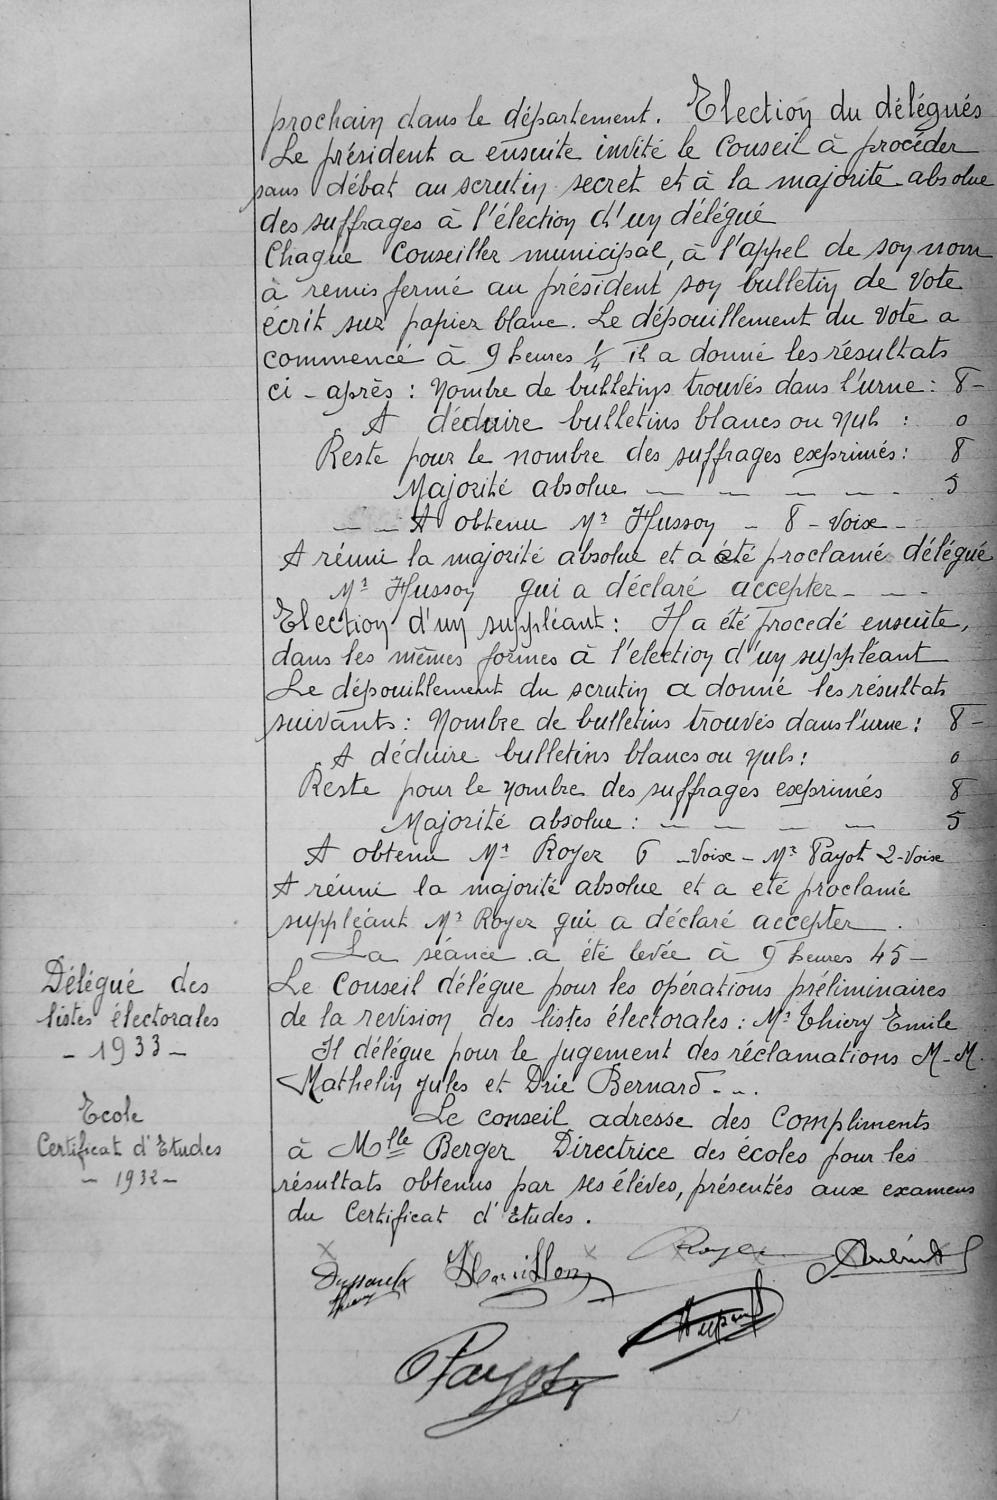 prochain dans le département. Election du délégués
Le président a ensuite invité le Conseil à procéder
sans débat au scrutin secret et à la majorité absolue
des suffrages à l'élection d'un délégué
Chaque Conseiller municipal, à l'appel de son nom
à remis fermé au président son bulletin de Vote
écrit sur papier blanc. Le dépouillement du vote a
commencé à 9 heures 1/4 il a donné les résultats
ci-après : Nombre de bulletins trouvés dans l'urne : 8-
A déduire bulletins blancs ou nuls : 0
Reste pour le nombre des suffrages exprimés : 8
Majorité absolue — — — — - 5
— — A obtenu Mr Husson - 8 - Voix -
A réuni la majorité absolue et a été proclamé délégué
Mr Husson qui a déclaré accepter - - -
Election d'un suppléant : Il a été procedé ensuite,
dans les mêmes formes à l'élection d'un suppléant
Le dépouillement du scrutin a donné les résultats
suivants : Nombre de bulletins trouvés dans l'urne : 8-
A déduire bulletins blancs ou nuls : 0
Reste pour le nombre des suffrages exprimés 8
Majorité absolue : — — — — 5
A obtenu Mr Royer 6 - Voix - Mr Payot 2 - Voix
A réuni la majorité absolue et a été proclamé
suppléant Mr Royer qui a déclaré accepter .
La séance a été levée à 9 heures 45 -
Délégué des
listes électorales
- 1933 -
Le Conseil délégue pour les opérations préliminaires
de la revision des listes électorales : Mr Thiery Emile
Il délégue pour le jugement des réclamations M-M.
Mathelin Jules et Drié Bernard - ..
Ecole
Certificat d'Etudes
- 1932 -
Le conseil adresse des Compliments
à Mlle Berger Directrice des écoles pour les
résultats obtenus par ses élèves, présentés aux examens
du Certificat d'Etudes .
Royer
Thiery
Payot